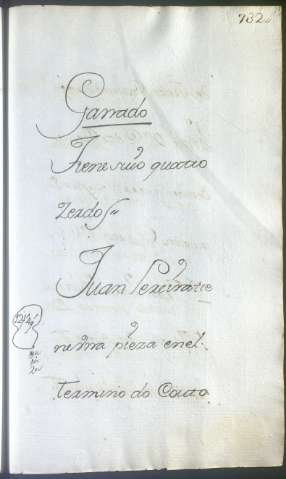 732
Ganado
Tiene suio quatro
Zerdos
Juan Pereira tie
ne una pieza en el
termino do Couto